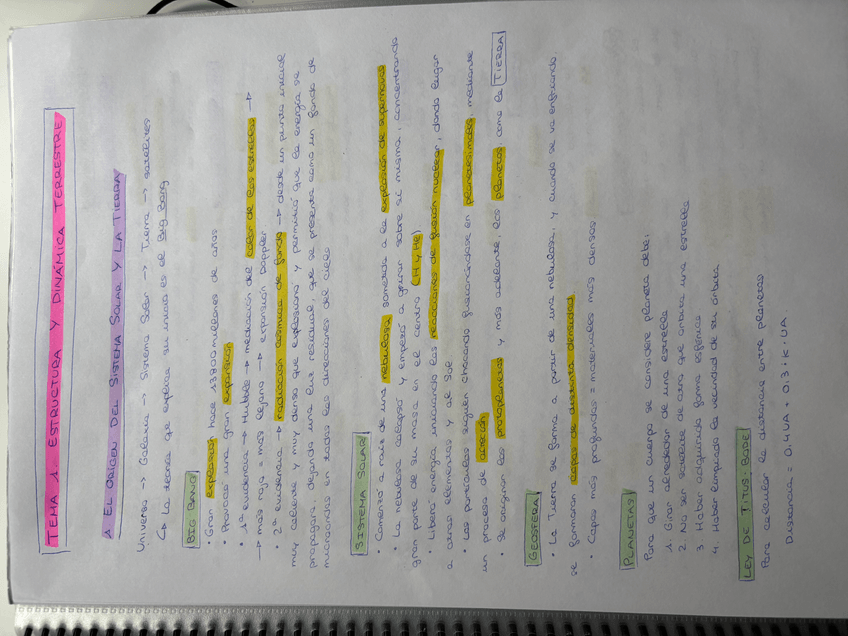 TEMA 1. ESTRUCTURA Y DINÁMICA TERRESTRE
1 EL ORIGEN DEL SISTEMA SOLAR Y LA TIERRA
Universo → Galaxia → Sistema Solar → Tierra → satélites
↳ La teoría que explica su inicio es el Big Bang
BIG BANG
· Gran explosión hace 13800 millones de años
· Provocó una gran expansión
· 1ª evidencia → Hubble → medición del color de las estrellas →
→ más roja = más lejana → expansión Doppler
· 2ª evidencia → radiación cósmica de fondo → desde un punto inicial
muy caliente y muy denso que explosiona y permitió que la energía se
propagara, dejando una luz residual, que se presenta como un fondo de
microondas en todas las direcciones del cielo
SISTEMA SOLAR
· Comenzó a raíz de una nebulosa sometida a la explosión de supernovas
· La nebulosa colapsó y empezó a girar sobre sí misma, concentrando
gran parte de su masa en el centro (H y He)
· Liberó energía iniciando las reacciones de fusión nuclear, dando lugar
a otros elementos y al Sol
· Las partículas siguen chocando fusionándose en planetesimales mediante
un proceso de acreción
· Se originan los protoplanetas y más adelante, los planetas, como la TIERRA
GEOSFERA
· La Tierra se forma a partir de una nebulosa, y cuando se va enfriando,
se formaran capas de distinta densidad
· Capas más profundas = materiales más densos
PLANETAS
Para que un cuerpo se considere planeta debe:
1. Girar alrededor de una estrella
2. No ser satélite de otro que orbita una estrella
3. Haber adquirido forma esférica
4. Haber limpiado la vecindad de su órbita
LEY DE TITUS-BODE
Para calcular la distancia entre planetas
Distancia = 0.4 UA + 0.3 · K · UA.